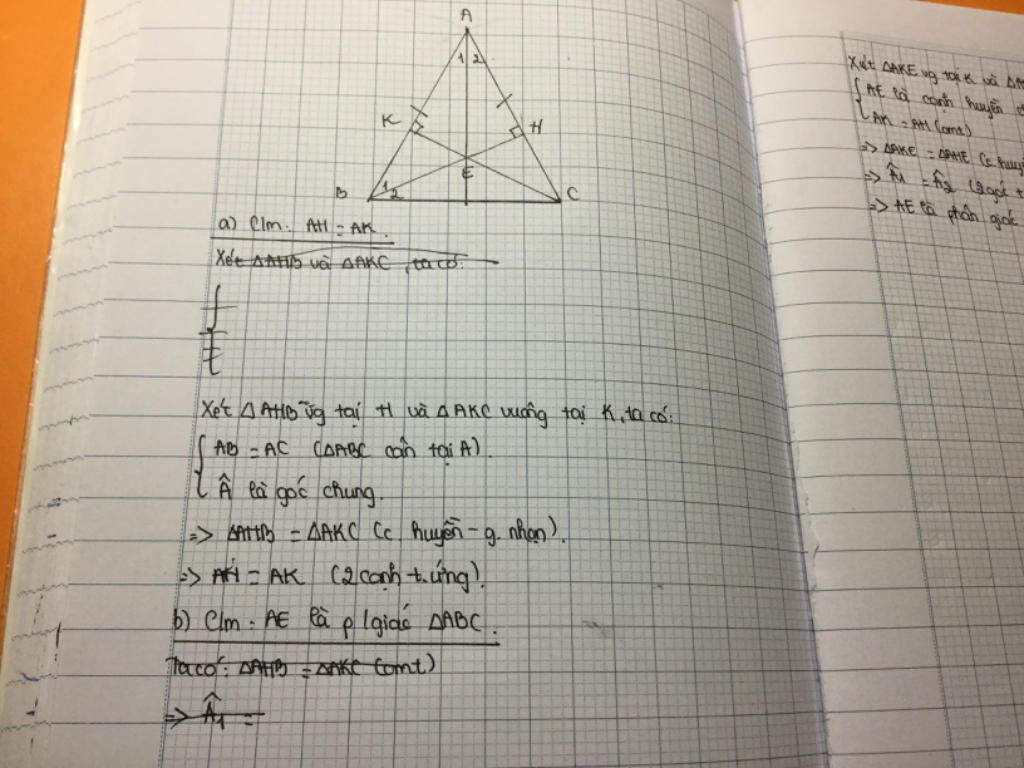 A
1 2
K
H
E
B
1 2
C
a) Clm: AH = AK.
Xét ΔAHB và ΔAKC, ta có:
Xét ΔAHB vg tại H và ΔAKC vuông tại K, ta có:
AB = AC (ΔABC cân tại A).
Â là góc chung.
=> ΔAHB = ΔAKC (c. huyền - g. nhọn).
=> AH = AK (2 cạnh t. ứng).
b) Clm: AE là p/giác ΔABC.
Ta có: ΔAHB = ΔAKC (cmt)
=> Â1 =
Xét ΔAKE vg tại K và
AE là cạnh huyền
AK = AH (cmt)
=> ΔAKE = ΔAHE (c. huyề
=> Â1 = Â2 (2 góc t
=> AE là phân giác